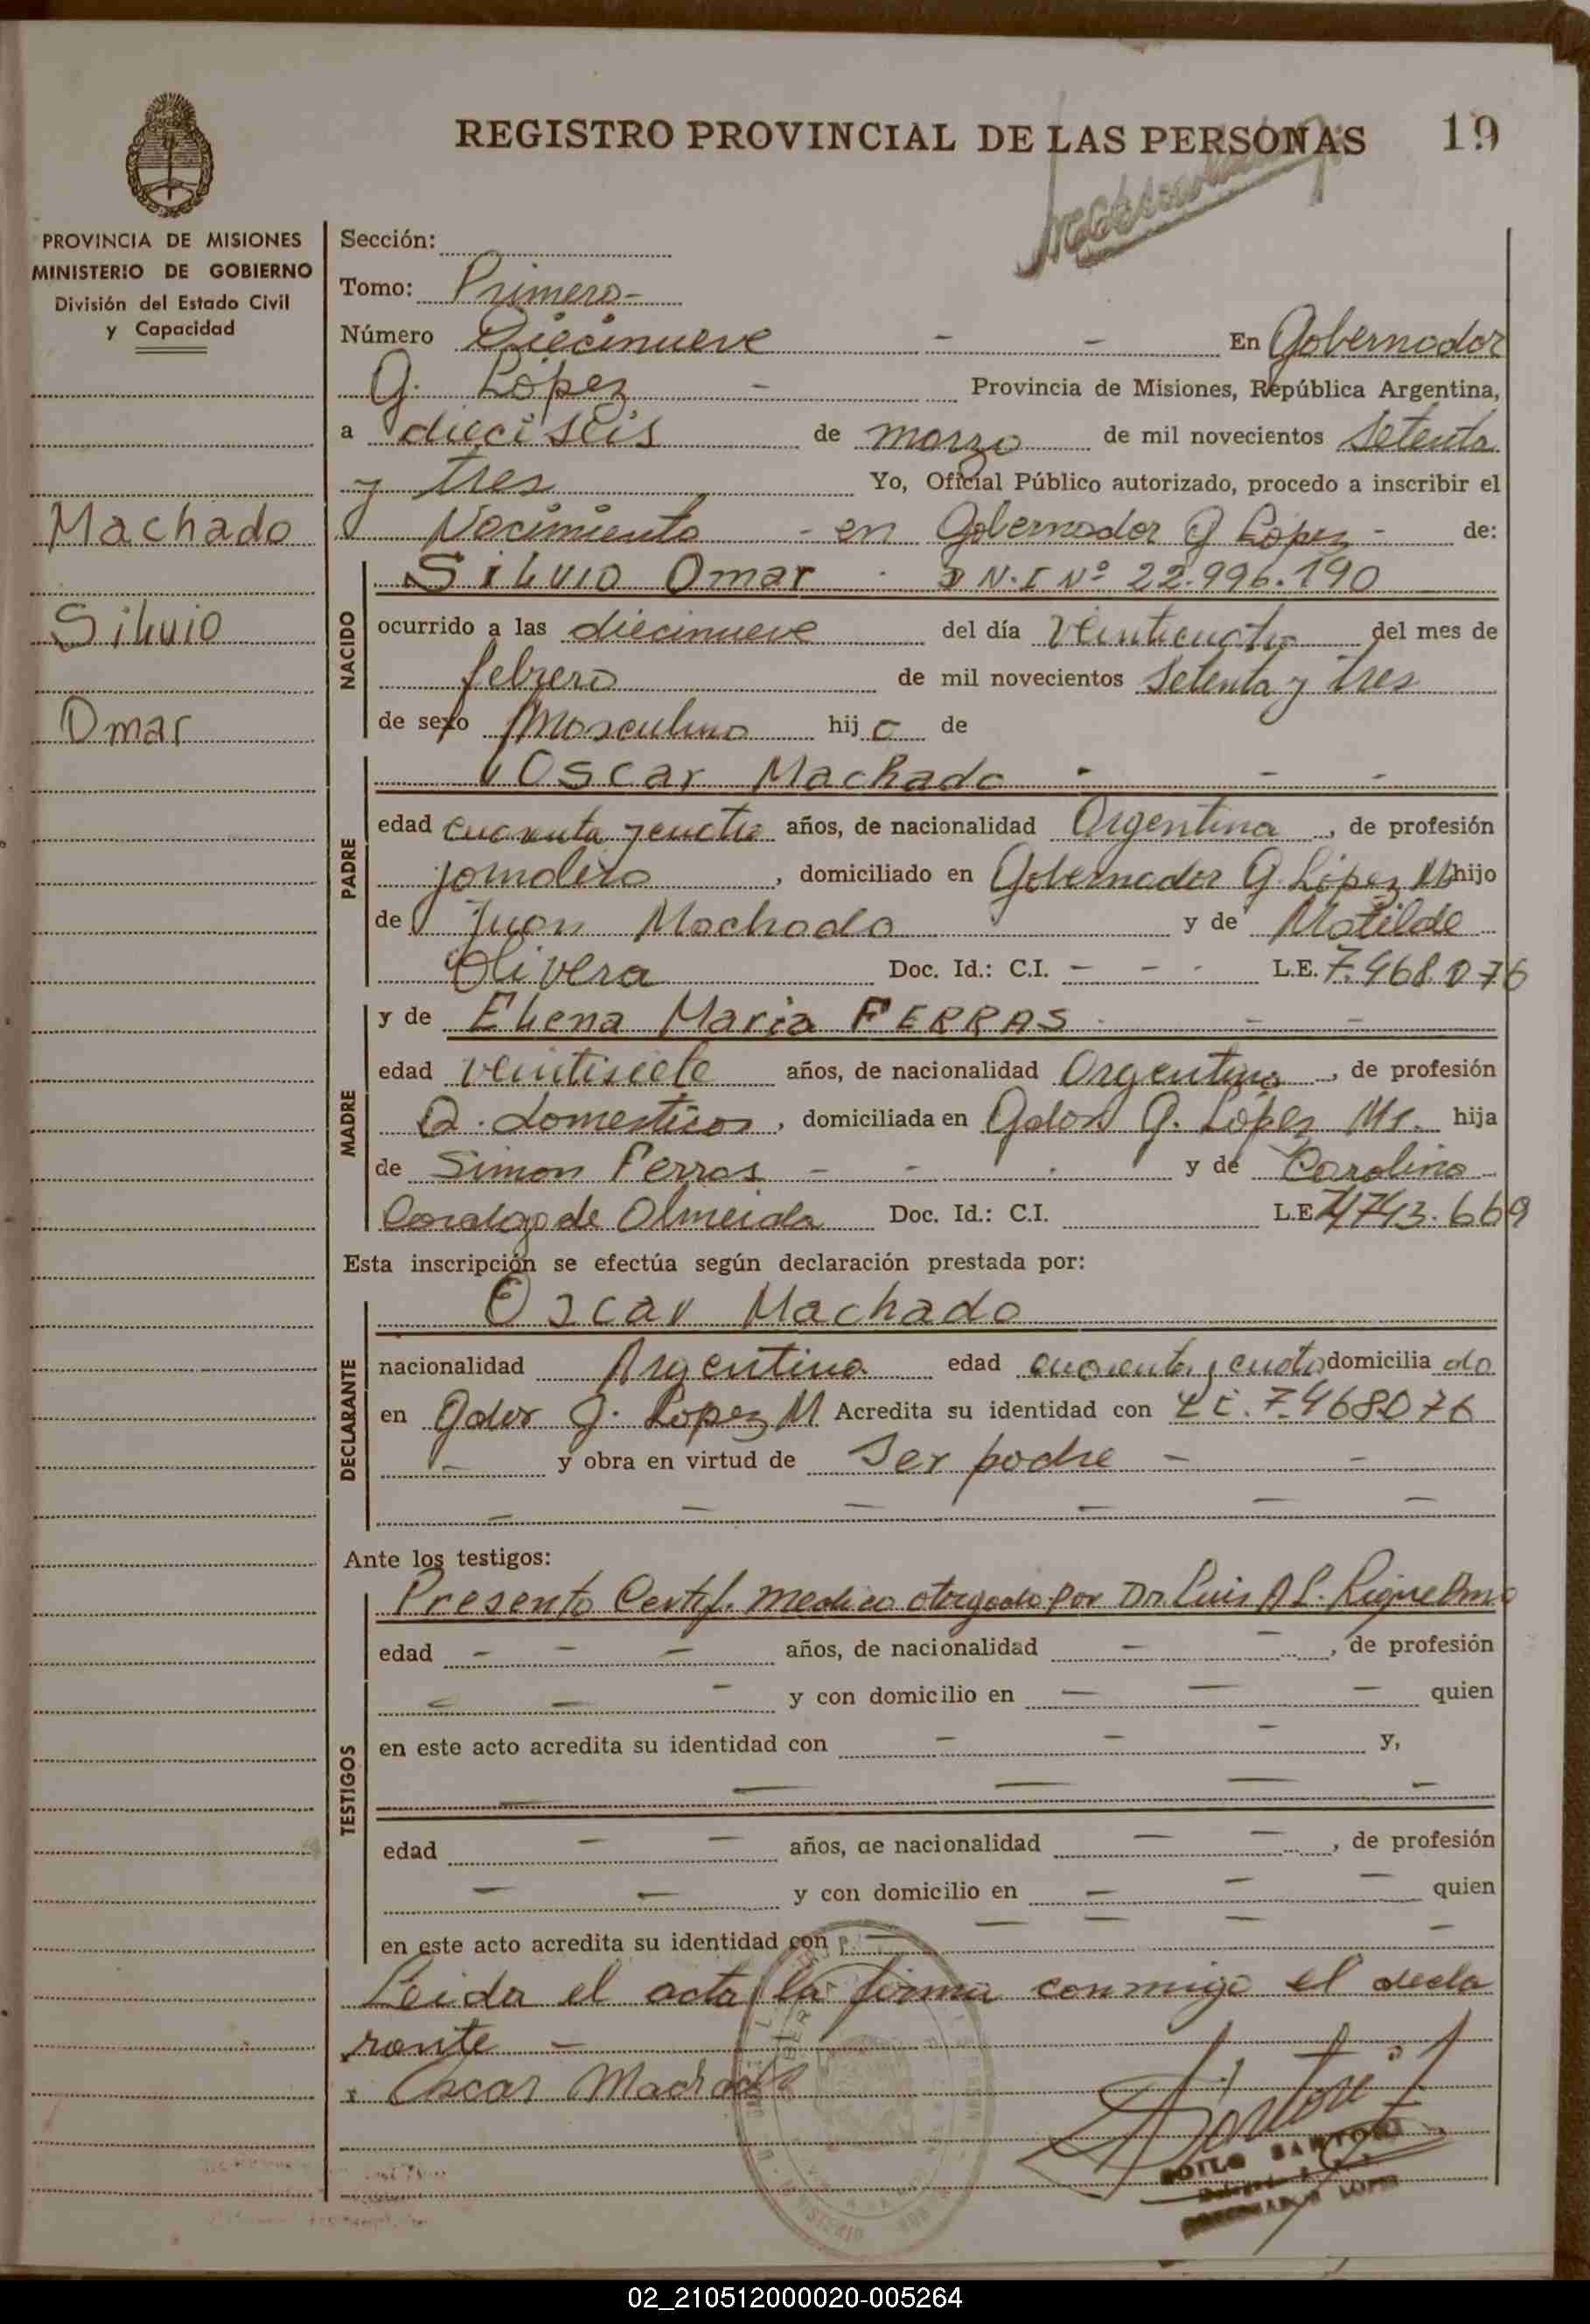 REGISTRO PROVINCIAL DE LAS PERSONAS 19
PROVINCIA DE MISIONES
MINISTERIO DE GOBIERNO
División del Estado Civil
y Capacidad
Machado
Silvio
Omar
Sección:
Tomo: Primero-
Número Diecinueve - - En Gobernador
G. López - Provincia de Misiones, República Argentina,
a dieciseis de marzo de mil novecientos Setenta
y tres Yo, Oficial Público autorizado, procedo a inscribir el
Nacimiento - en Gobernador G López - de:
NACIDO
Silvio Omar - D N.I Nº 22.996.190
ocurrido a las diecinueve del día Veinticuatro del mes de
febrero de mil novecientos Setenta y tres
de sexo Masculino hijo de
PADRE
Oscar Machado - - -
edad cuarenta y cuatro años, de nacionalidad Argentina, de profesión
jornalero, domiciliado en Gobernador G. López Ms hijo
de Juan Machado y de Matilde
Olivera Doc. Id.: C.I. - - - L.E. 7.468.076
MADRE
y de Elena Maria FERRAS - - -
edad veintisiete años, de nacionalidad Argentina, de profesión
Q. domesticos, domiciliada en Gdor G. López Ms. hija
de Simon Ferras - - - y de Carolina
de Olmeida Doc. Id.: C.I. L.E. 4743.669
Esta inscripción se efectúa según declaración prestada por:
DECLARANTE
Oscar Machado
nacionalidad Argentina edad cuarenta y cuatro domiciliado
en Gdor G. Lopez M Acredita su identidad con L E. 7.468076
- y obra en virtud de Ser padre - -
- - - - - -
Ante los testigos:
TESTIGOS
Presento Certif. medico otorgado por Dr. Luis A L.
edad - - - años, de nacionalidad - -, de profesión
- - - y con domicilio en - - - quien
en este acto acredita su identidad con - - - y,
- - - - -
edad - - años, de nacionalidad - -, de profesión
- - y con domicilio en - - - quien
en este acto acredita su identidad con - - - - -
Leida el acta la firma conmigo el decla
rante -
x Oscar Machado
ZOILO SARTORI
GOBERNADOR LOPEZ
02_210512000020-005264